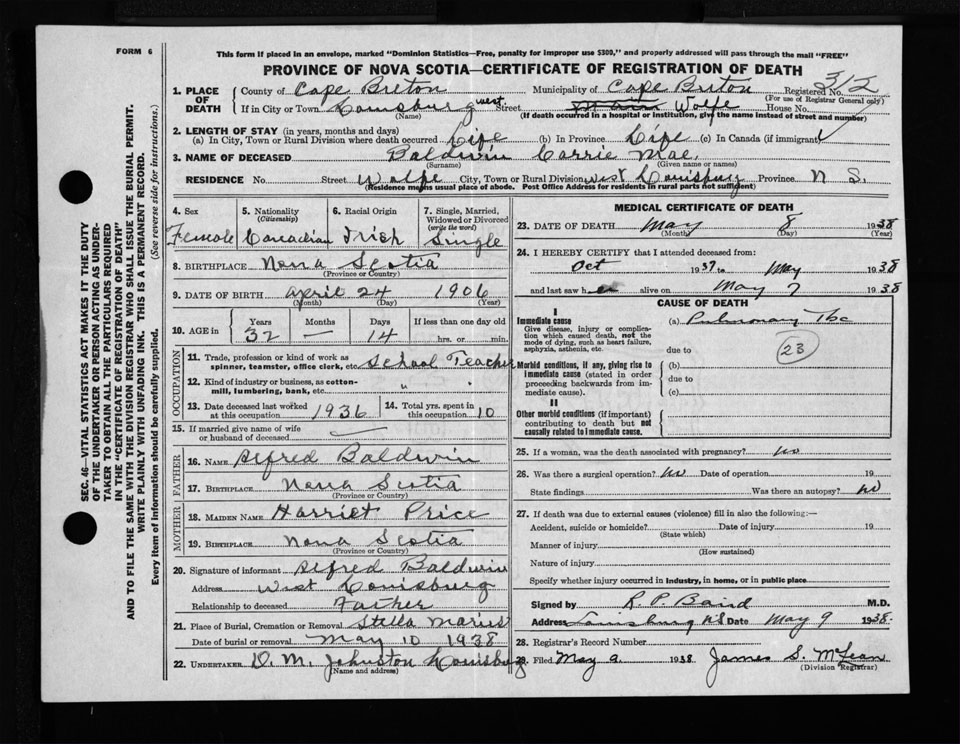 FORM 6
This form if placed in an envelope, marked "Dominion Statistics—Free, penalty for improper use $300," and properly addressed will pass through the mail "FREE"
PROVINCE OF NOVA SCOTIA—CERTIFICATE OF REGISTRATION OF DEATH
312
1. PLACE OF DEATH
County of Cape Breton Municipality of Cape Breton Registered No.
(For use of Registrar General only)
If in City or Town Louisburg west Street Wolfe House No.
(Name) (If death occurred in a hospital or institution, give the name instead of street and number)
2. LENGTH OF STAY (in years, months and days)
(a) In City, Town or Rural Division where death occurred Life (b) In Province Life (c) In Canada (if immigrant)
3. NAME OF DECEASED Baldwin Carrie Mae.
(Surname) (Given name or names)
RESIDENCE No. Street Wolfe City, Town or Rural Division West Louisburg Province N S.
(Residence means usual place of abode. Post Office Address for residents in rural parts not sufficient)
4. Sex
Female
5. Nationality
(Citizenship)
Canadian
6. Racial Origin
Irish
7. Single, Married, Widowed or Divorced
(write the word)
Single
8. BIRTHPLACE Nova Scotia
(Province or Country)
9. DATE OF BIRTH April 24 1906
(Month) (Day) (Year)
10. AGE in
Years Months Days If less than one day old
32 — 14 hrs. or min.
OCCUPATION
11. Trade, profession or kind of work as spinner, teamster, office clerk, etc. School Teacher
12. Kind of industry or business, as cotton-mill, lumbering, bank, etc. " "
13. Date deceased last worked at this occupation 1936
14. Total yrs. spent in this occupation 10
15. If married give name of wife or husband of deceased —
FATHER
16. NAME Alfred Baldwin
17. BIRTHPLACE Nova Scotia
(Province or Country)
MOTHER
18. MAIDEN NAME Harriet Price
19. BIRTHPLACE Nova Scotia
(Province or Country)
20. Signature of informant Alfred Baldwin
Address West Louisburg
Relationship to deceased Father
21. Place of Burial, Cremation or Removal Stella Maris
Date of burial or removal May 10 1938
22. UNDERTAKER D. M. Johnston Louisburg
(Name and address)
MEDICAL CERTIFICATE OF DEATH
23. DATE OF DEATH May 8 1938
(Month) (Day) (Year)
24. I HEREBY CERTIFY that I attended deceased from:
Oct 1937 to May 1938
and last saw her alive on May 7 1938
CAUSE OF DEATH
I
Immediate cause
Give disease, injury or complication which caused death, not the mode of dying, such as heart failure, asphyxia, asthenia, etc.
(a) Pulmonary Tbc
23
due to
Morbid conditions, if any, giving rise to immediate cause (stated in order proceeding backwards from immediate cause).
(b)
due to
(c)
II
Other morbid conditions (if important) contributing to death but not causally related to immediate cause.
25. If a woman, was the death associated with pregnancy? no
26. Was there a surgical operation? No Date of operation 19
State findings Was there an autopsy? no
27. If death was due to external causes (violence) fill in also the following:—
Accident, suicide or homicide? Date of injury 19
(State which)
Manner of injury
(How sustained)
Nature of injury
Specify whether injury occurred in industry, in home, or in public place
Signed by R. P. Baird M.D.
Address Louisburg NS Date May 9 1938.
28. Registrar's Record Number
29. Filed May 9. 1938 James S. McLean
(Division Registrar)
SEC. 46—VITAL STATISTICS ACT MAKES IT THE DUTY
OF THE UNDERTAKER OR PERSON ACTING AS UNDER-
TAKER TO OBTAIN ALL THE PARTICULARS REQUIRED
IN THE "CERTIFICATE OF REGISTRATION OF DEATH"
AND TO FILE THE SAME WITH THE DIVISION REGISTRAR WHO SHALL ISSUE THE BURIAL PERMIT.
WRITE PLAINLY WITH UNFADING INK. THIS IS A PERMANENT RECORD.
Every item of information should be carefully supplied. (See reverse side for instructions.)